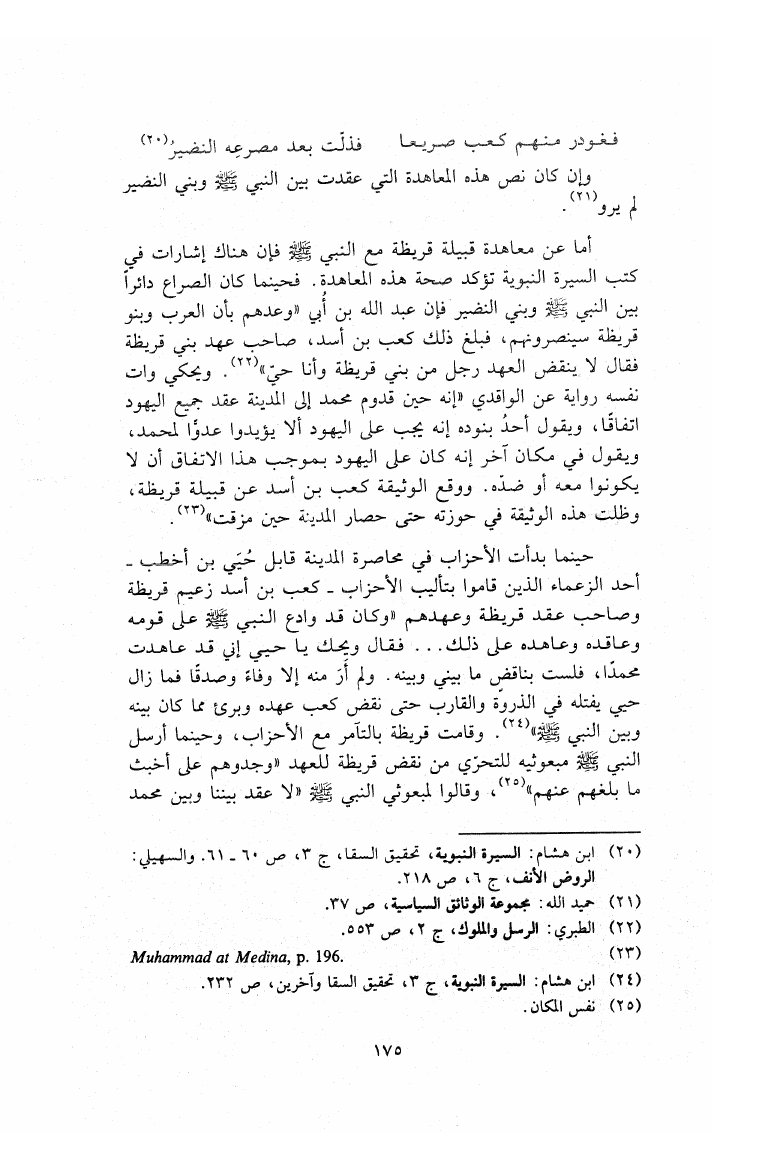 فغودر منهم كعب صريعا    فذلّت بعد مصرعِه النضيرُ(٢٠)
وإن كان نص هذه المعاهدة التي عقدت بين النبي ﷺ وبني النضير
لم يرو(٢١).
أما عن معاهدة قبيلة قريظة مع النبي ﷺ فإن هناك إشارات في
كتب السيرة النبوية تؤكد صحة هذه المعاهدة. فحينما كان الصراع دائراً
بين النبي ﷺ وبني النضير فإن عبد الله بن أُبي «وعدهم بأن العرب وبنو
قريظة سينصرونهم، فبلغ ذلك كعب بن أسد، صاحب عهد بني قريظة
فقال لا ينقض العهد رجل من بني قريظة وأنا حيّ»(٢٢). ويحكي وات
نفسه رواية عن الواقدي «إنه حين قدوم محمد إلى المدينة عقد جميع اليهود
اتفاقًا، ويقول أحدُ بنوده إنه يجب على اليهود ألا يؤيدوا عدوًا لمحمد،
ويقول في مكان آخر إنه كان على اليهود بموجب هذا الاتفاق أن لا
يكونوا معه أو ضدّه. ووقع الوثيقة كعب بن أسد عن قبيلة قريظة،
وظلت هذه الوثيقة في حوزته حتى حصار المدينة حين مزقت»(٢٣).
حينما بدأت الأحزاب في محاصرة المدينة قابل حُيَي بن أخطب ـ
أحد الزعماء الذين قاموا بتأليب الأحزاب ـ كعب بن أسد زعيم قريظة
وصاحب عقد قريظة وعهدهم «وكان قد وادع النبي ﷺ على قومه
وعاقده وعاهده على ذلك... فقال ويحك يا حيي إني قد عاهدت
محمدًا، فلست بناقضٍ ما بيني وبينه. ولم أَرَ منه إلا وفاءً وصدقًا فما زال
حيي يفتله في الذروة والقارب حتى نقض كعب عهده وبرئ مما كان بينه
وبين النبي ﷺ»(٢٤). وقامت قريظة بالتآمر مع الأحزاب، وحينما أرسل
النبي ﷺ مبعوثيه للتحرّي من نقض قريظة للعهد «وجدوهم على أخبث
ما بلغهم عنهم»(٢٥)، وقالوا لمبعوثي النبي ﷺ «لا عقد بيننا وبين محمد
(٢٠) ابن هشام: السيرة النبوية، تحقيق السقا، ج ٣، ص ٦٠ ـ ٦١. والسهيلي:
الروض الأنف، ج ٦، ص ٢١٨.
(٢١) حميد الله: مجموعة الوثائق السياسية، ص ٣٧.
(٢٢) الطبري: الرسل والملوك، ج ٢، ص ٥٥٣.
(٢٣) Muhammad at Medina, p. 196.
(٢٤) ابن هشام: السيرة النبوية، ج ٣، تحقيق السقا وآخرين، ص ٢٣٢.
(٢٥) نفس المكان.
١٧٥